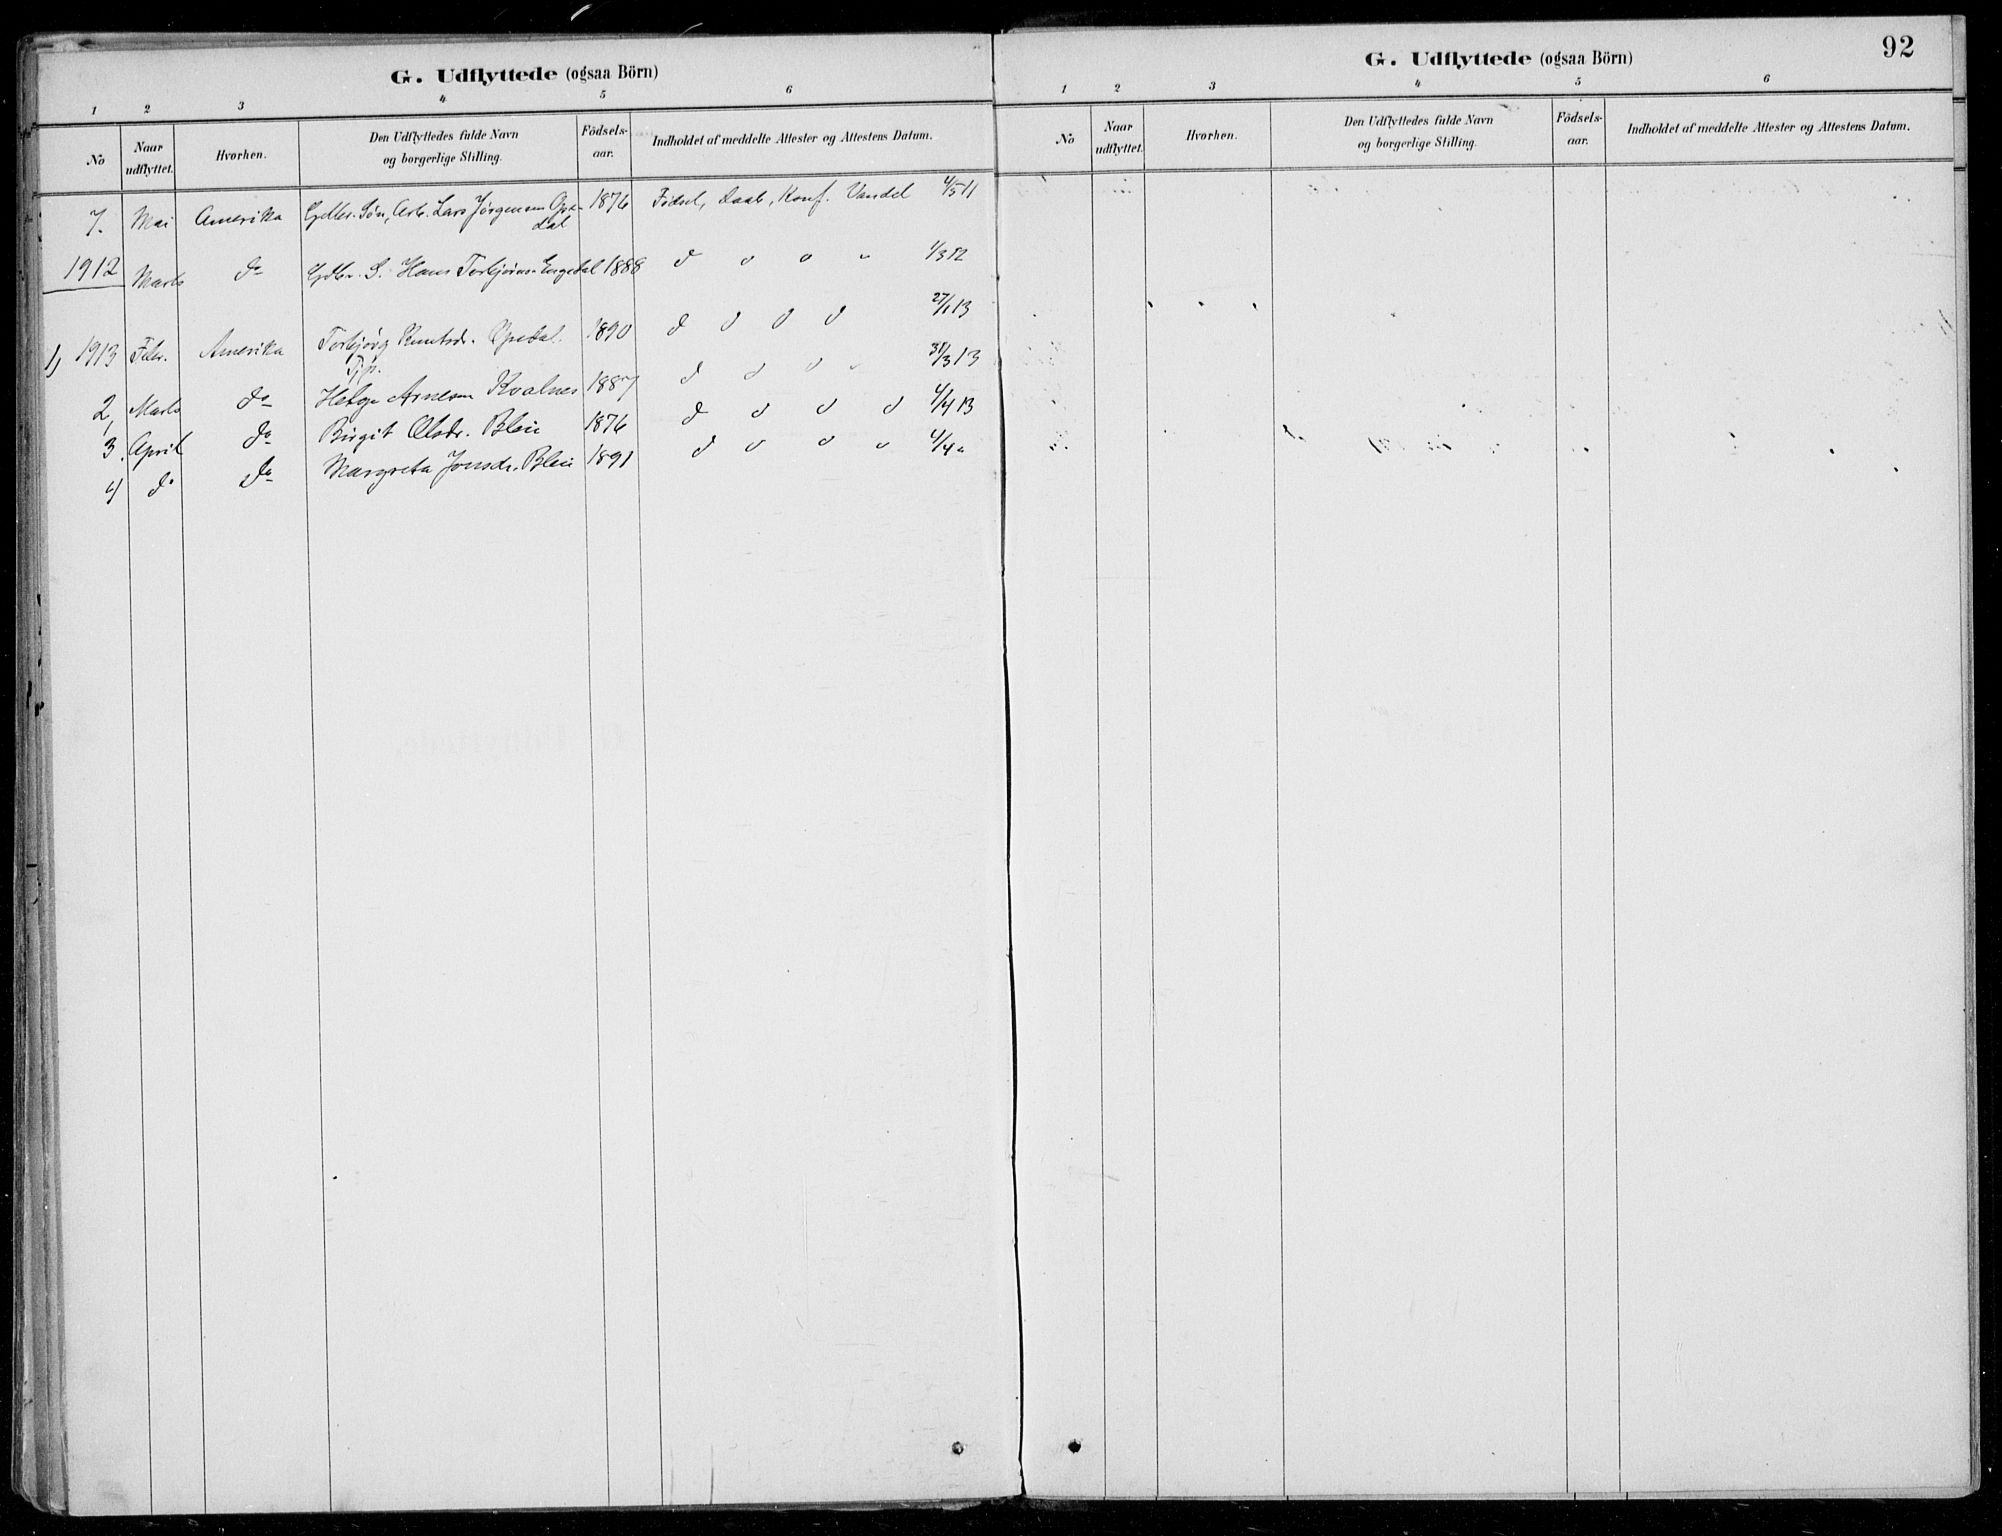 G. Udflyttede (ogsaa Börn)
1 2 3 4 5 6
No Naar udflyttet. Hvorhen. Den Udflyttedes fulde Navn og borgerlige Stilling. Födsels-aar. Indholdet af meddelte Attester og Attestens Datum.
7. Mai Amerika Gdbr. Søn, Arb. Lars Jørgensen Ope- 1876 Fødsel, Daab, Konf. Vandel 4/5 11
dal
1912 Marts do Gdbr. S. Hans Torbjørns. Engedal 1888 d o o " 1/3 12
1) 1913 Febr. Amerika Torbjørg Knutsdr. Opedal. 1890 d o o o 27/1 13
Tj.p.
2, Marts do Helge Arnesen Kvalnes 1887 d o o " 31/3 13
3. April do Birgit Olsdr. Bleie 1876 d o o o 4/4 13
4) do do Margreta Jonsdr. Bleie 1891 d o o o 4/4 "
92
G. Udflyttede (ogsaa Börn)
1 2 3 4 5 6
No Naar udflyttet. Hvorhen. Den Udflyttedes fulde Navn og borgerlige Stilling. Födsels-aar. Indholdet af meddelte Attester og Attestens Datum.